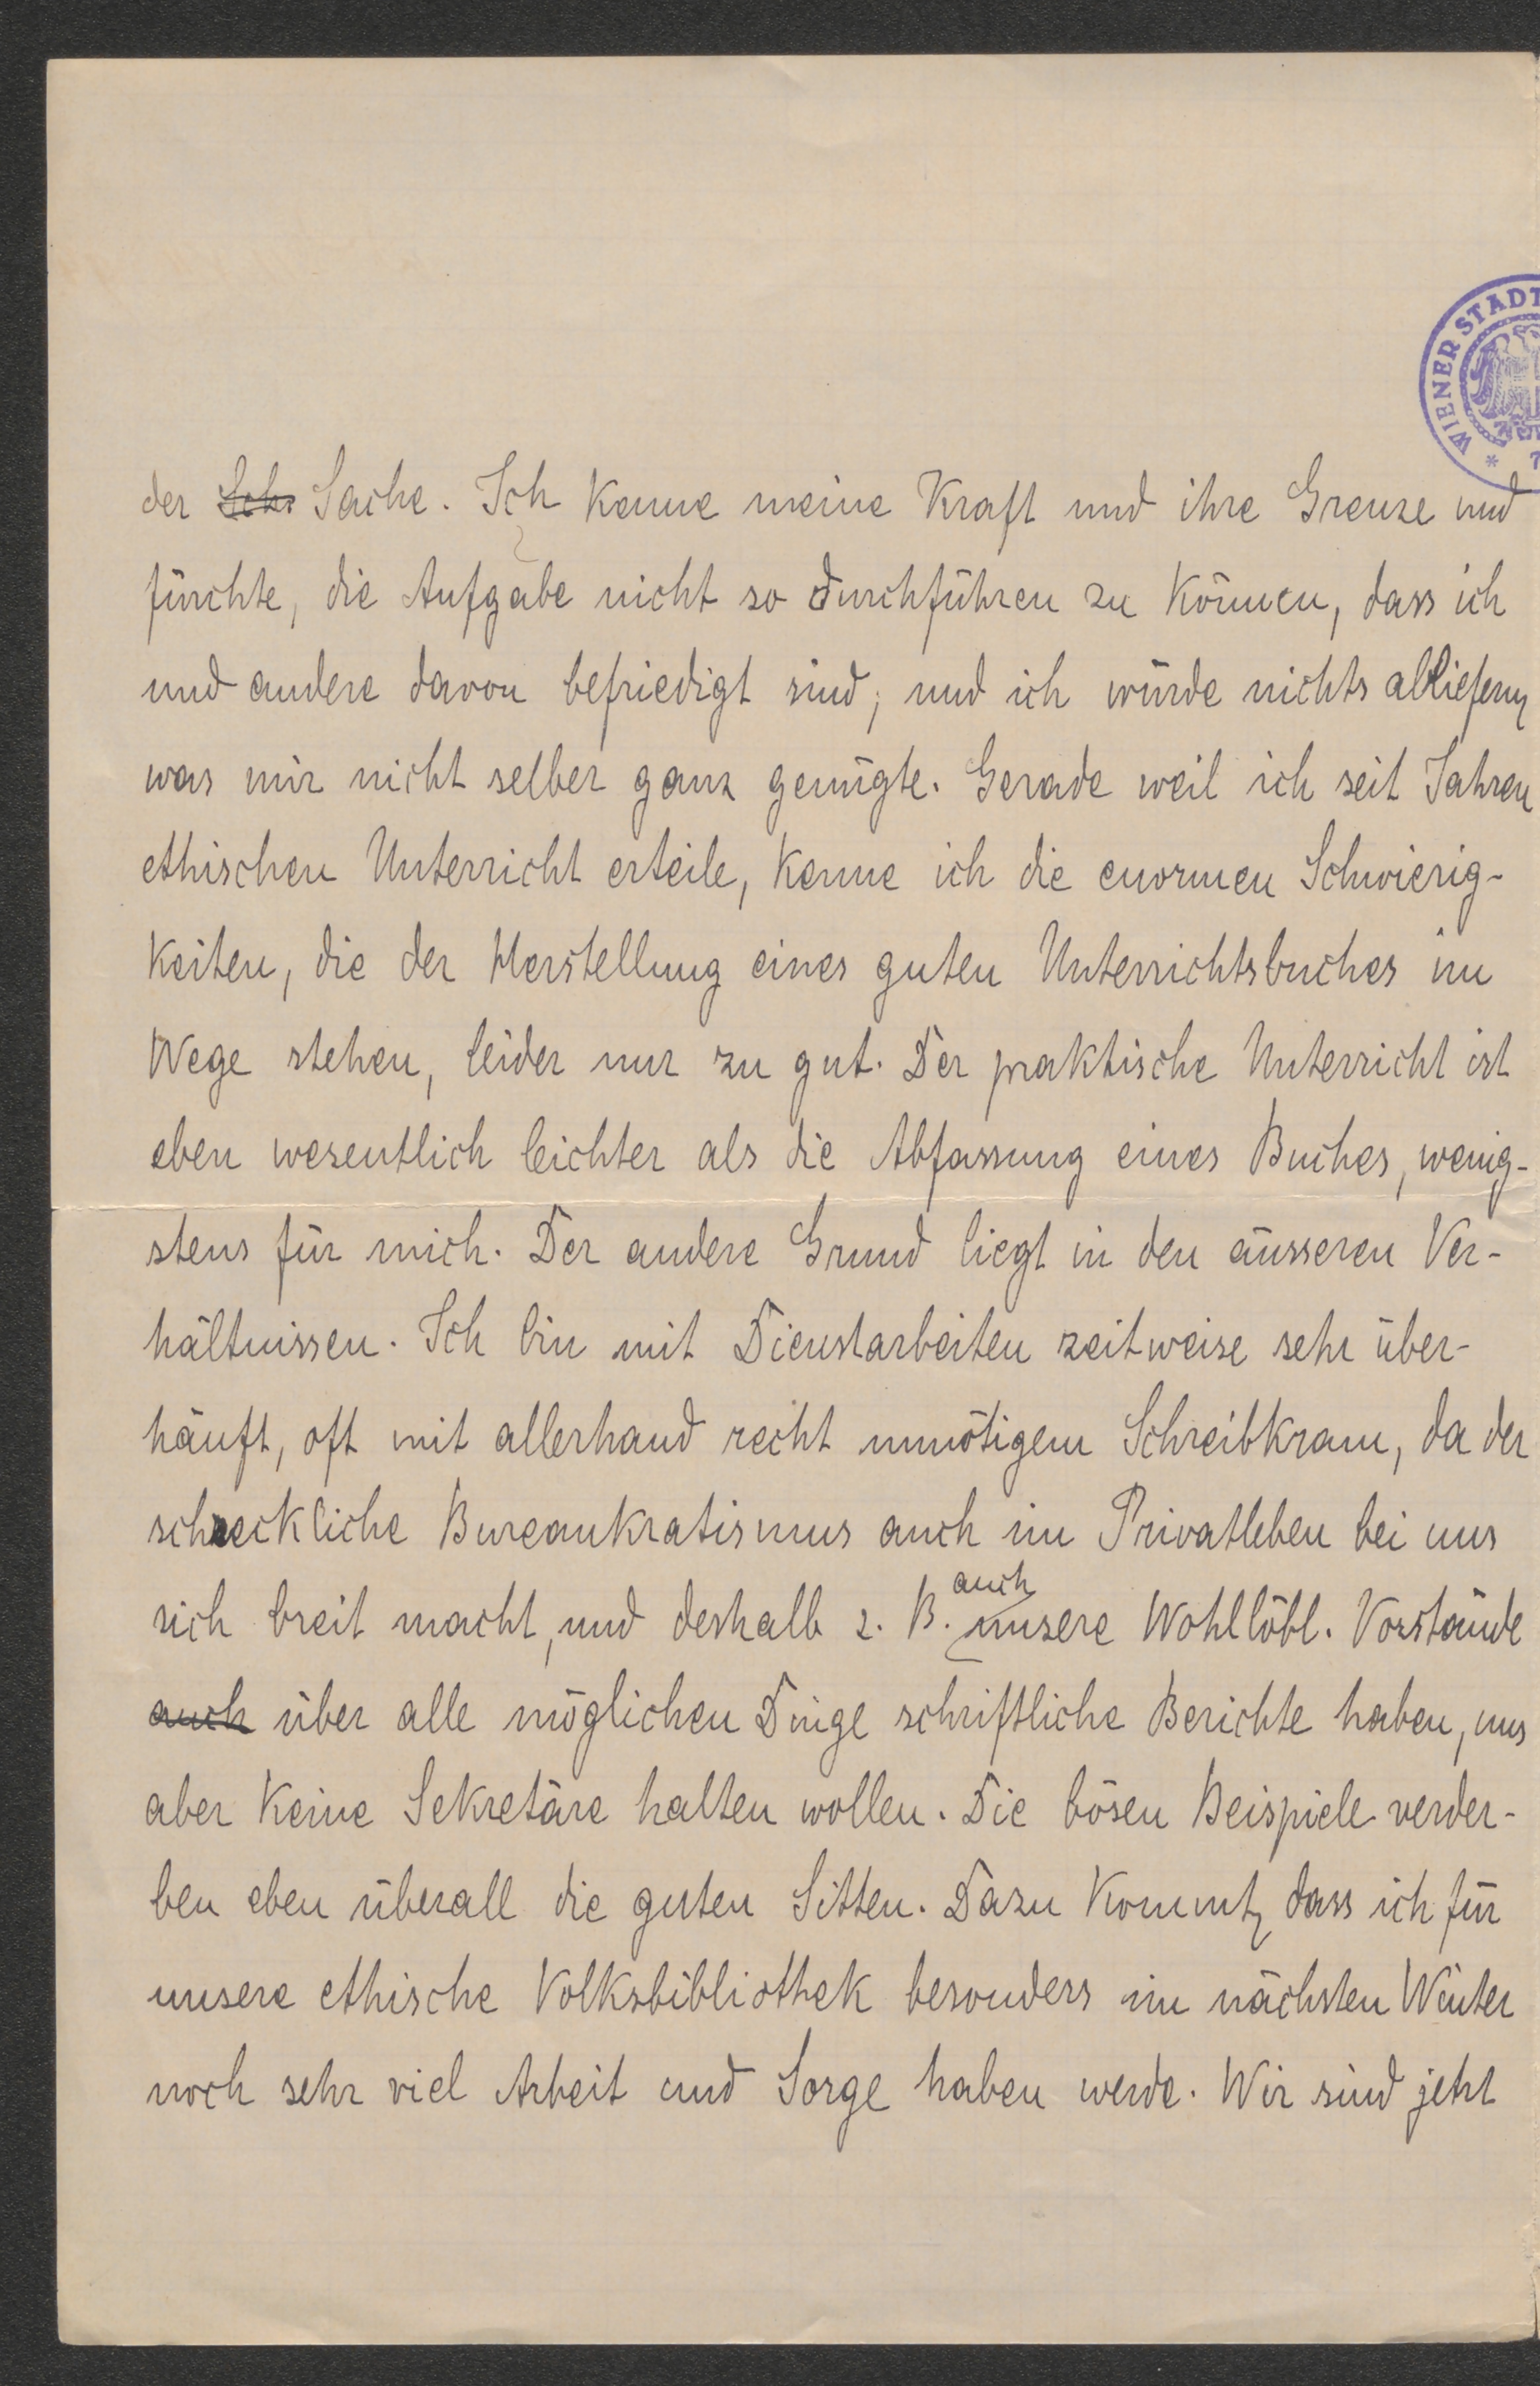 WIENER STADT
der Sch Sache. Ich kenne meine Kraft und ihre Grenze und
fürchte, die Aufgabe nicht so durchführen zu können, dass ich
und andere davon befriedigt sind; und ich würde nichts abliefern,
was mir nicht selber ganz genügte. Gerade weil ich seit Jahren
ethischen Unterricht erteile, kenne ich die enormen Schwierig-
keiten, die der Herstellung eines guten Unterrichtsbuches im
Wege stehen, leider nur zu gut. Der praktische Unterricht ist
eben wesentlich leichter als die Abfassung eines Buches, wenig-
stens für mich. Der andere Grund liegt in den äusseren Ver-
hältnissen. Ich bin mit Dienstarbeiten zeitweise sehr über-
häuft, oft mit allerhand recht unnötigem Schreibkram, da der
schreckliche Bureaukratismus auch im Privatleben bei uns
sich breit macht, und deshalb z. B. auch unsere Wohllöbl. Vorstände
auch über alle möglichen Dinge schriftliche Berichte haben, uns
aber keine Sekretäre halten wollen. Die bösen Beispiele verder-
ben eben überall die guten Sitten. Dazu kommt, dass ich für
unsere ethische Volksbibliothek besonders im nächsten Winter
noch sehr viel Arbeit und Sorge haben werde. Wir sind jetzt